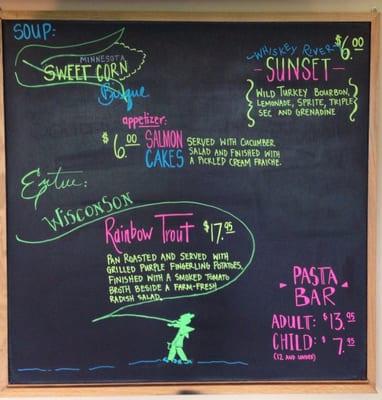 SOUP:
MINNESOTA
SWEET CORN
Bisque
WHISKEY RIVER
$6.00
SUNSET
WILD TURKEY BOURBON,
LEMONADE, SPRITE, TRIPLE
SEC AND GRENADINE
appetizer:
$6.00 SALMON
CAKES
SERVED WITH CUCUMBER
SALAD AND FINISHED WITH
A PICKLED CREAM FRAICHE.
Entree:
WISCONSON
Rainbow Trout $17.95
PAN ROASTED AND SERVED WITH
GRILLED PURPLE FINGERLING POTATOES.
FINISHED WITH A SMOKED TOMATO
BROTH BESIDE A FARM-FRESH
RADISH SALAD.
PASTA
BAR
ADULT: $13.95
CHILD: $7.95
(12 AND UNDER)